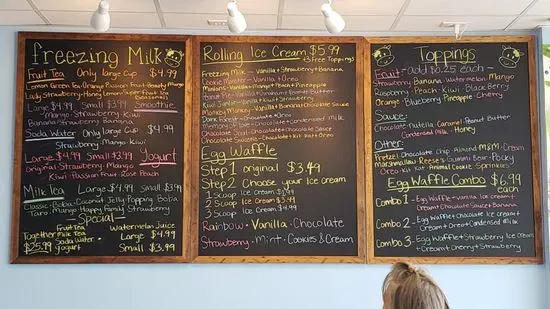 freezing Milk
Fruit Tea Only large Cup $4.99
Lemon Green Tea · Orange Passion Fruit · Beauty Mango
Lady Strawberry · Honey Lemon · Lemon Super Fruit Tea
Large $4.99 Small $3.99 Smoothie
Mango · Strawberry · Kiwi
Banana · Strawberry Banana
Soda Water Only large Cup $4.99
Strawberry · Mango · Kiwi
Large $4.99 Small $3.99 Yogurt
Original · Strawberry · Mango
Kiwi · Passion Fruit · Rose Peach
Milk Tea Large $4.99 Small $3.99
Classic · Boba · Coconut Jelly · Popping Boba
Taro · Mango · Happy Family · Strawberry
Special
Together
$25.99
Fruit Tea
Milk Tea
Soda Water
yogurt
Watermelon Juice
Large $4.99
Small $3.99
Rolling Ice Cream $5.99
+3 Free Toppings
Freezing Milk - Vanilla + Strawberry + Banana
Cookie Monster - Vanilla + Oreo
Monkey Monkey - Vanilla + Banana + Chocolate Sauce
Dark Forest - Chocolate + Oreo
Egg Waffle
Step 1 original $3.49
Step 2 Choose your Ice cream
1 Scoop Ice cream
2 Scoop Ice cream $3.49
3 Scoop Ice cream $4.99
Rainbow · Vanilla · Chocolate
Strawberry · Mint · Cookies & Cream
Toppings
Fruit - add $0.25 each
Strawberry · Banana · Watermelon · Mango
Raspberry · Peach · Kiwi · BlackBerry
Orange · Blueberry · Pineapple · Cherry
Sauce:
Chocolate · nutella · Caramel · Peanut Butter
Condensed Milk · Honey
Other:
Pretzel · Chocolate Chip · Almond · M&M · Cream
Marshmallow · Reese's · Gummy Bear · Pocky
Oreo · Kit Kat · Animal Cookie · Sprinkles
Egg Waffle Combo $6.99 each
Combo 1 - Egg Waffle + Vanilla Ice cream +
Cream + Chocolate Sauce + Banana
Combo 2 - Egg Waffle + Chocolate Ice cream +
Cream + Oreo + Condensed Milk
Combo 3 - Egg Waffle + Strawberry Ice Cream
+ Cream + Cherry + Strawberry